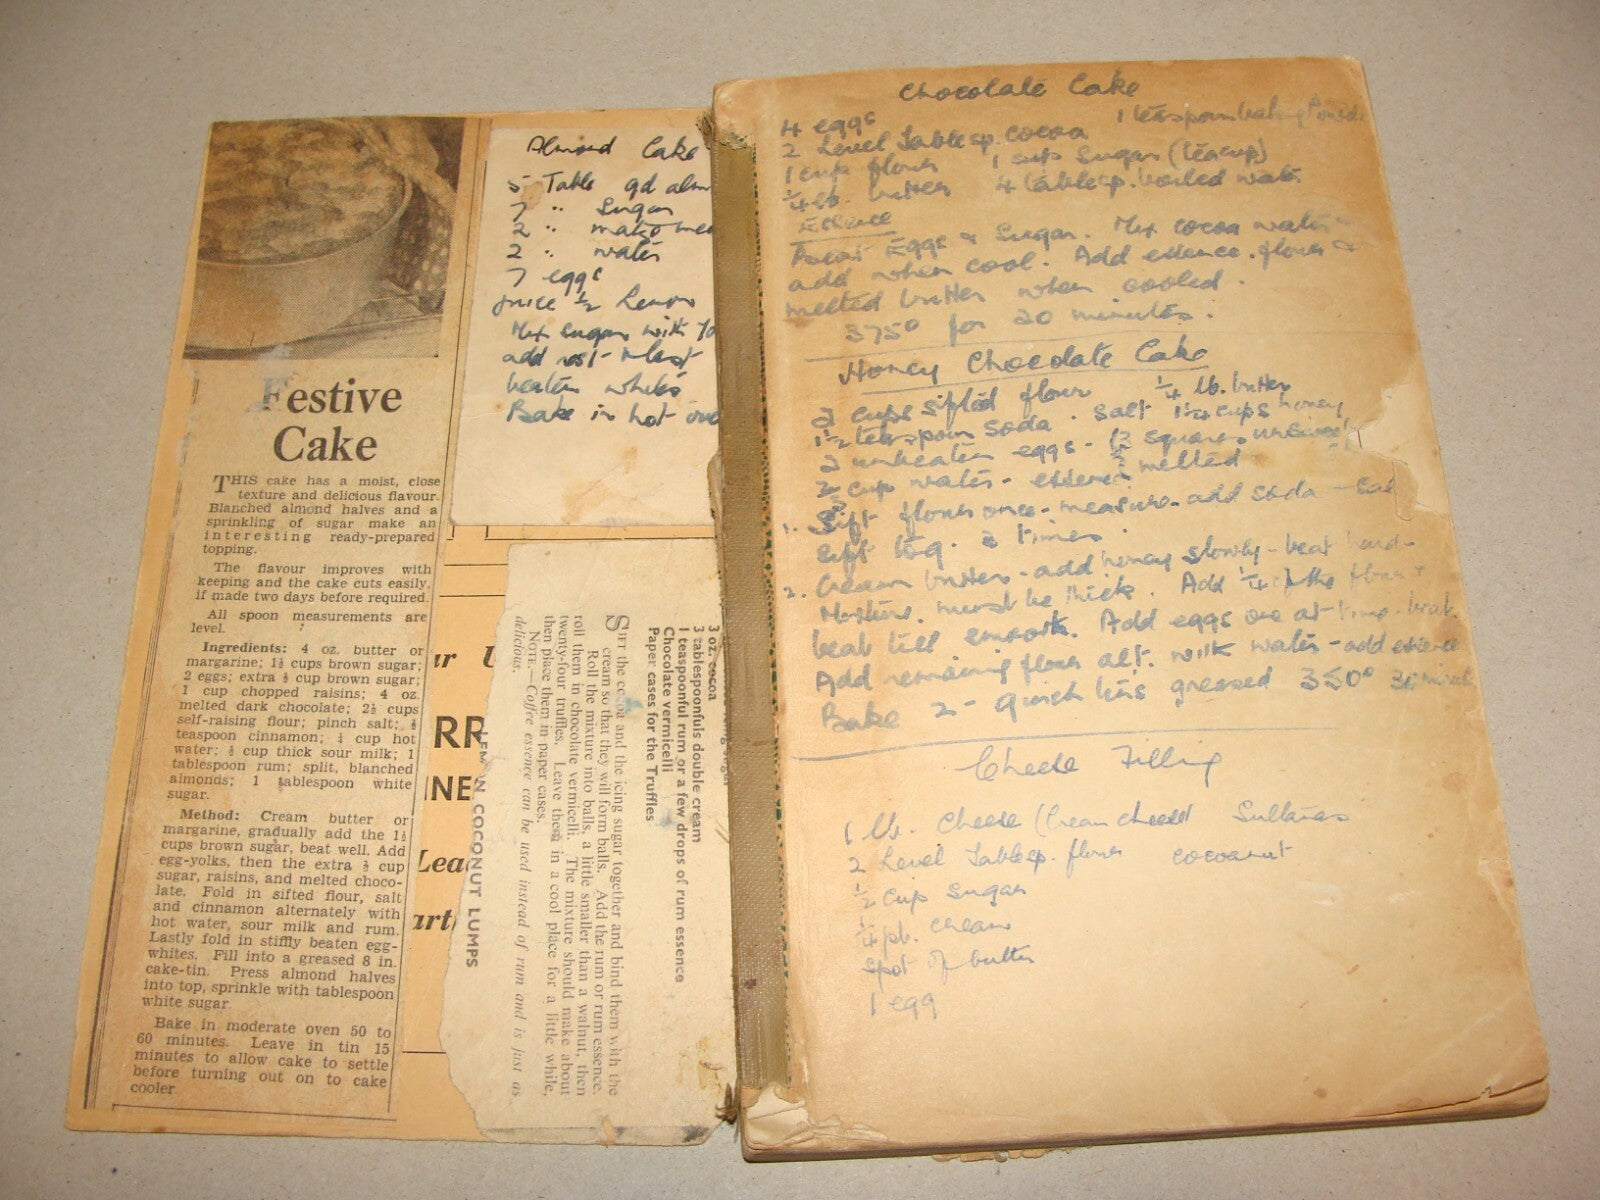 Festive
Cake
THIS cake has a moist, close
texture and delicious flavour.
Blanched almond halves and a
sprinkling of sugar make an
interesting ready-prepared
topping.
The flavour improves with
keeping and the cake cuts easily,
if made two days before required.
All spoon measurements are
level.
Ingredients: 4 oz. butter or
margarine; 1½ cups brown sugar;
2 eggs; extra ½ cup brown sugar;
1 cup chopped raisins; 4 oz.
melted dark chocolate; 2½ cups
self-raising flour; pinch salt;
teaspoon cinnamon; cup hot
water; cup thick sour milk; 1
tablespoon rum; split, blanched
almonds; 1 tablespoon white
sugar.
Method: Cream butter or
margarine, gradually add the 1½
cups brown sugar, beat well. Add
egg-yolks, then the extra ½ cup
sugar, raisins, and melted choco-
late. Fold in sifted flour, salt
and cinnamon alternately with
hot water, sour milk and rum.
Lastly fold in stiffly beaten egg-
whites. Fill into a greased 8 in.
cake-tin. Press almond halves
into top, sprinkle with tablespoon
white sugar.
Bake in moderate oven 50 to
60 minutes. Leave in tin 15
minutes to allow cake to settle
before turning out on to cake
cooler.
Almond Cake
5 Table gd alm
7 " Sugar
2 " matzo mea
2 " water
7 eggs
juice ½ Lemon
Mix sugar with yo
add rest & last
beaten whites
Bake in hot ove
3 oz. cocoa
3 tablespoonfuls double cream
1 teaspoonful rum or a few drops of rum essence
Chocolate vermicelli
Paper cases for the Truffles
SIFT the cocoa and the icing sugar together and bind them with the
cream so that they will form balls. Add the rum or rum essence.
Roll the mixture into balls, a little smaller than a walnut, then
roll them in chocolate vermicelli. The mixture should make about
twenty-four truffles. Leave them in a cool place for a little while,
then place them in paper cases.
NOTE.—Coffee essence can be used instead of rum and is just as
delicious.
COCONUT LUMPS
RR
INE
Lea
art
Chocolate Cake
4 eggs 1 teaspoon baking Powde
2 Level Tablesp. cocoa
1 cup flour 1 cup Sugar (teacup)
¼ lb. butter 4 tablesp. boiled water
Essence
Beat Eggs & Sugar. Mix cocoa water &
add when cool. Add essence, flour &
melted butter when cooled.
375° for 20 minutes.
Honey Chocolate Cake
2 cups sifted flour ¼ lb. butter
1½ teaspoon soda. Salt 1¼ cups honey
2 unbeaten eggs - 3 squares unsweet
cup water - essence melted
1. Sift flour once - measure - add soda - Salt
sift tog. 3 times
2. Cream butter - add honey slowly - beat hard -
Mixture must be thick. Add ¼ of the flour &
beat till smooth. Add eggs one at time - beat
Add remaining flour alt. with water - add essence
Bake 2 - 9 inch tins greased 350° 30 minute
Cheese Filling
1 lb. Cheese (Cream cheese) Sultanas
2 Level Tablesp. flour cocoanut
½ cup sugar
¼ pt. cream
spot of butter
1 egg